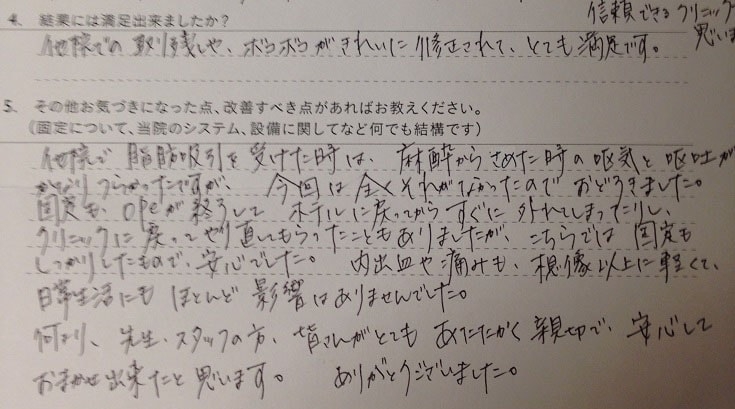 信頼できるクリニック
思いま
4. 結果には満足出来ましたか？
他院での取り残しや、ボコボコがきれいに修正されて、とても満足です。
5. その他お気づきになった点、改善すべき点があればお教えください。
（固定について、当院のシステム、設備に関してなど何でも結構です）
他院で脂肪吸引を受けた時は、麻酔からさめた時の吐気と嘔吐が
かなりつらかったですが、今回は全くそれがなかったのでおどろきました。
固定も、opeが終了して ホテルに戻ってからすぐに外れてしまったりし、
クリニックに戻ってやり直してもらったこともありましたが、こちらでは固定も
しっかりしたもので、安心でした。 内出血や痛みも、想像以上に軽くて、
日常生活にもほとんど影響はありませんでした。
何より、先生、スタッフの方、皆さんがとてもあたたかく親切で、安心して
おまかせ出来たと思います。 ありがとうございました。